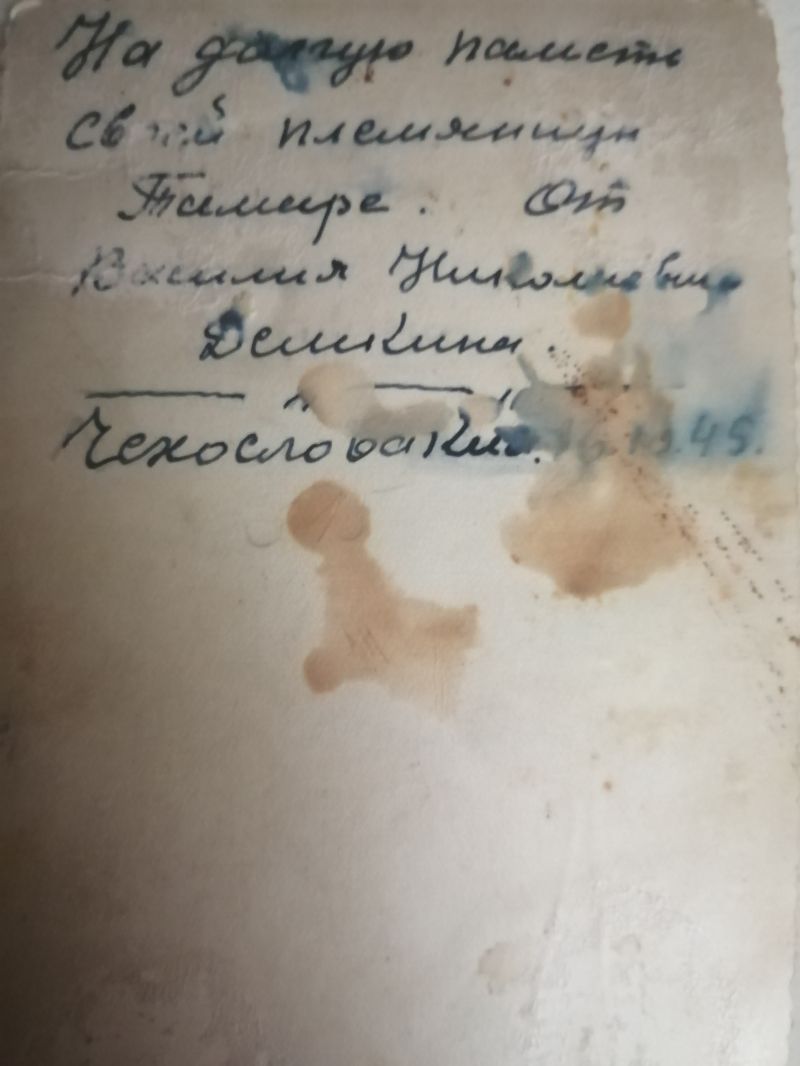 На долгую память
своей племянници
Тамаре. От
Василия Николаевича
Демкина.
Чехословакия.